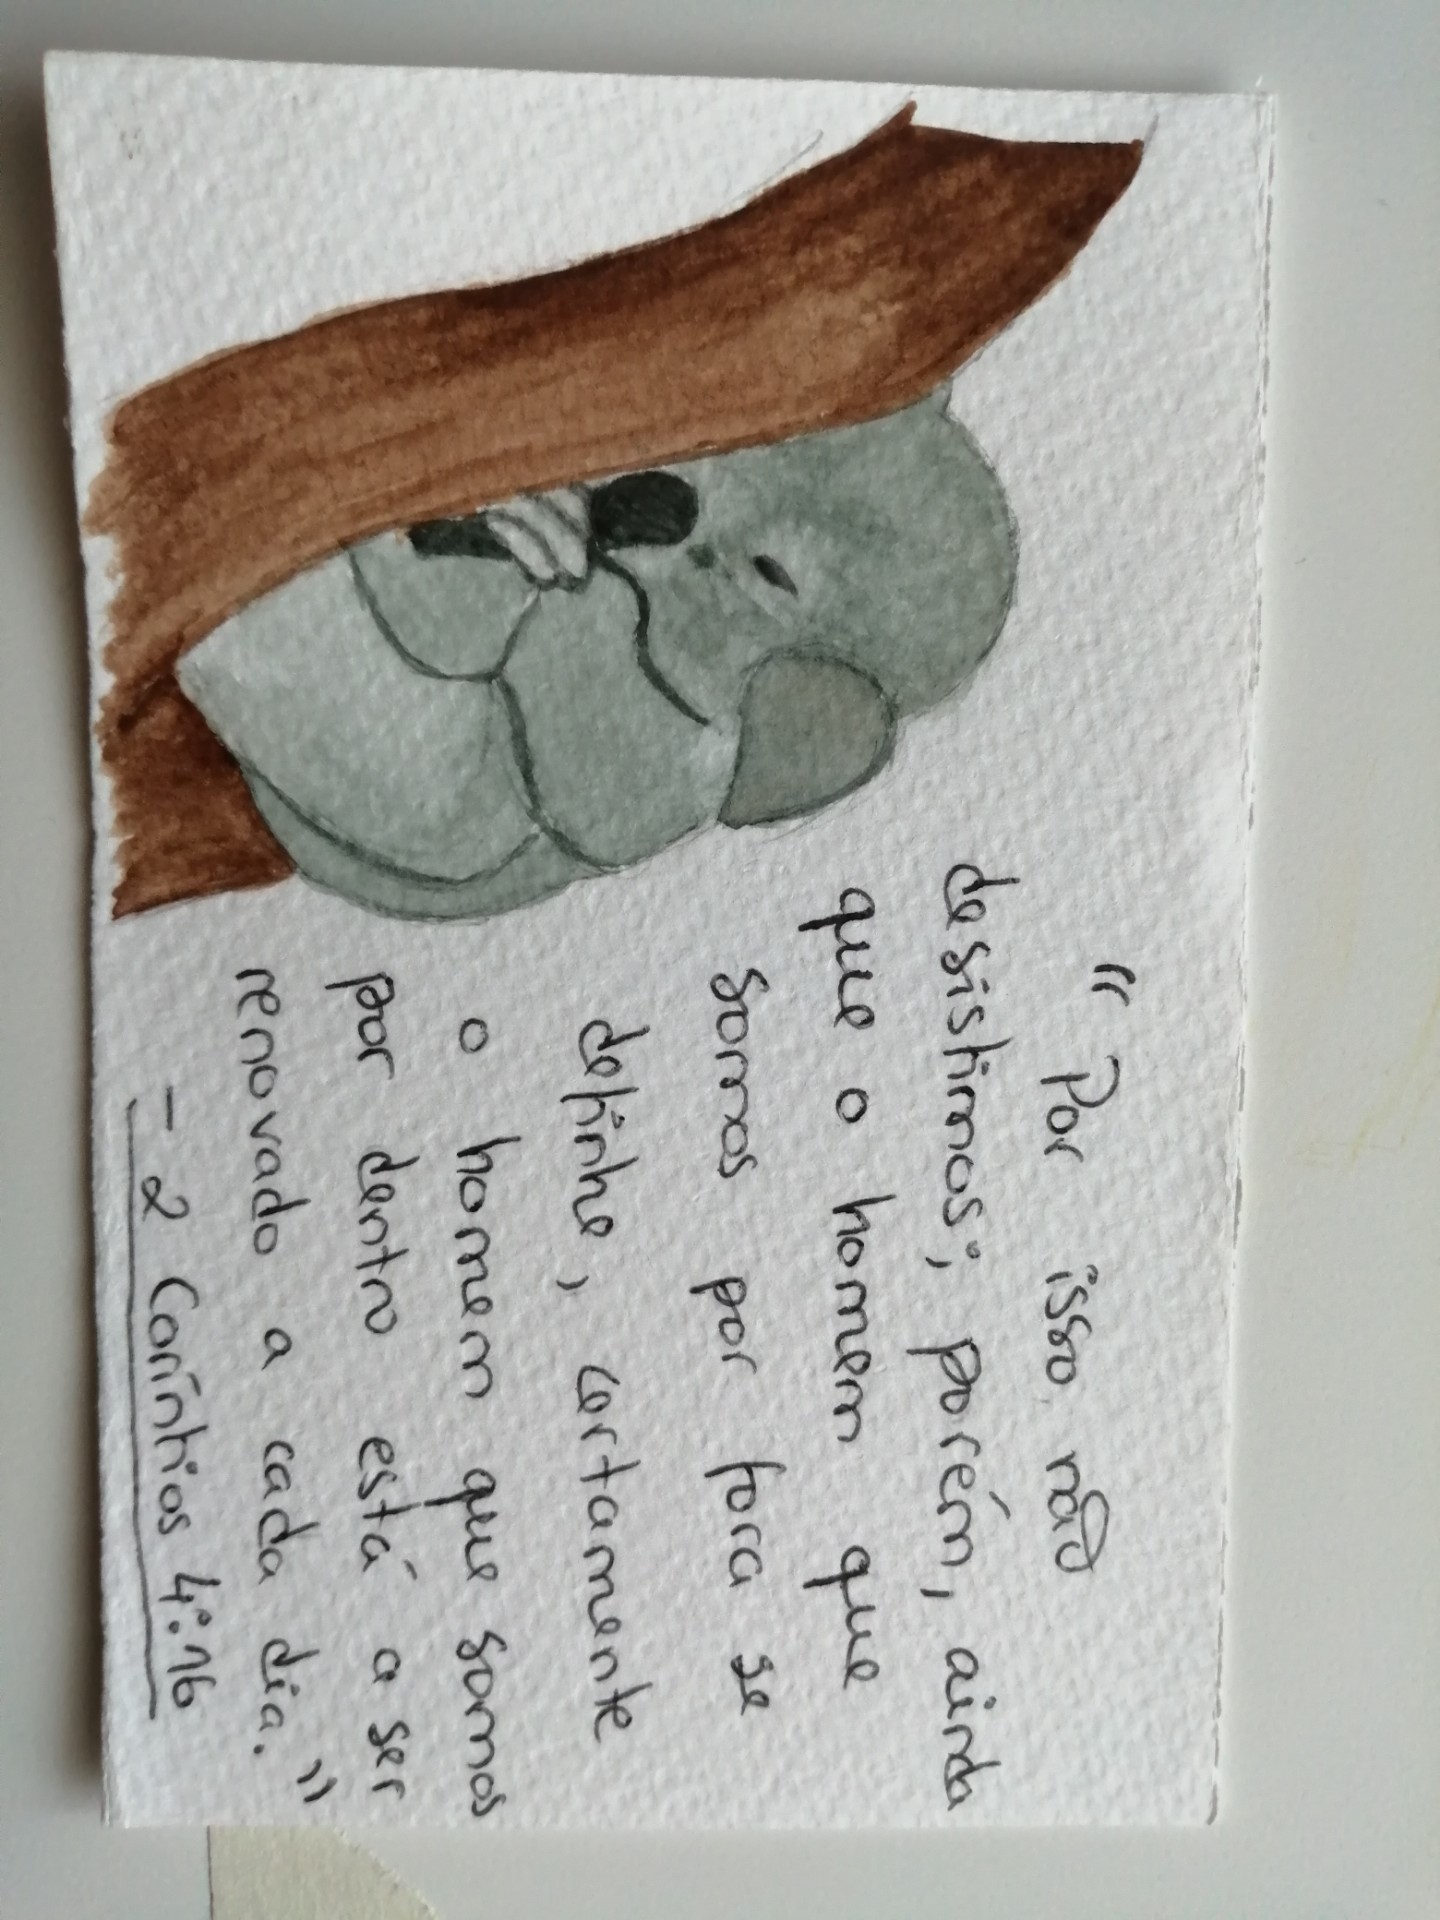 “ Por isso não
desistimos; porém, ainda
que o homem que
somos por fora se
definhe, certamente
o homem que somos
por dentro está a ser
renovado a cada dia. ”
- 2 Coríntios 4:16